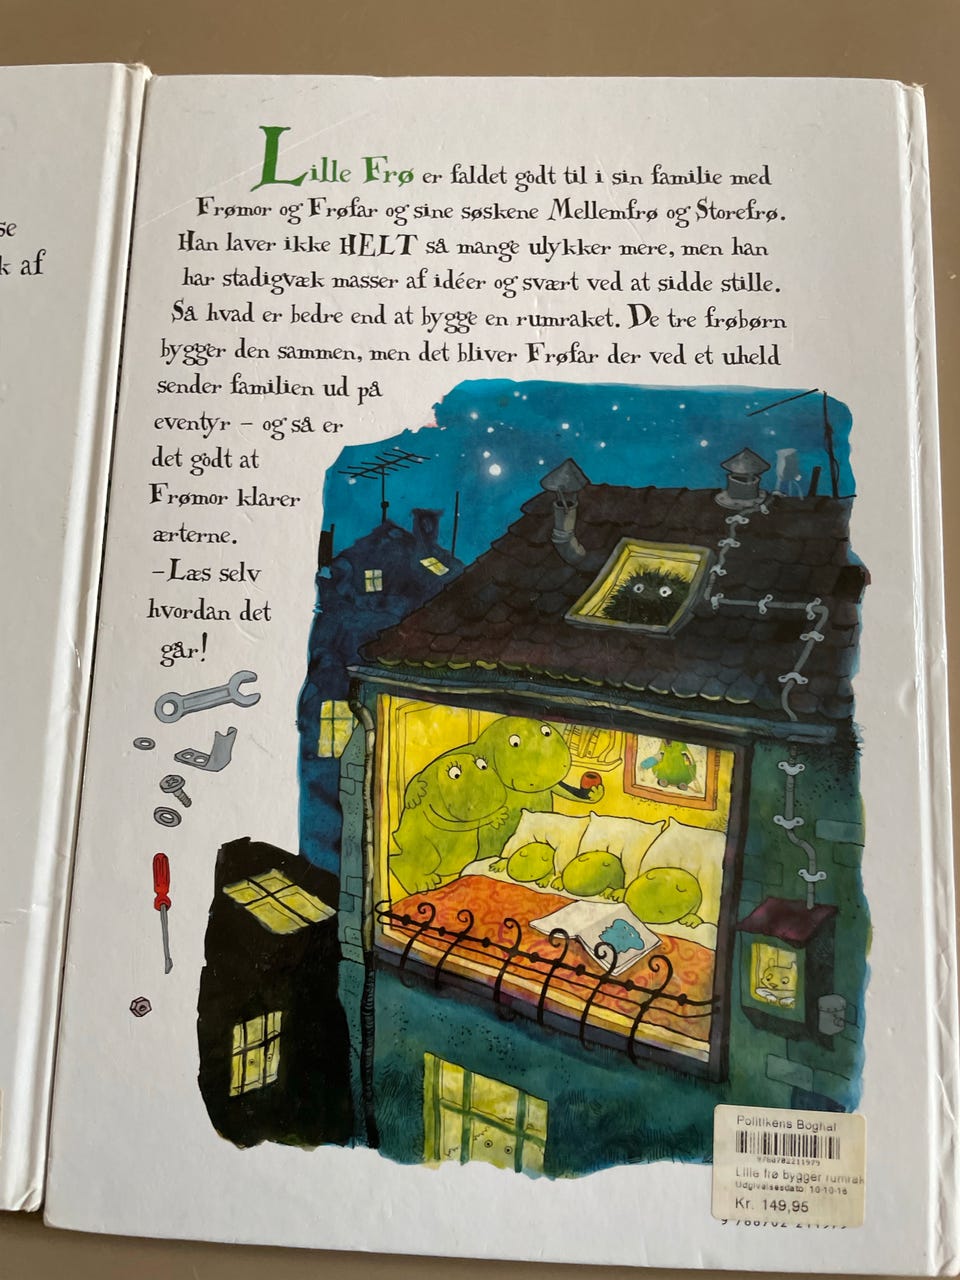 se
k af
Lille Frø er faldet godt til i sin familie med
Frømor og Frøfar og sine søskene Mellemfrø og Storefrø.
Han laver ikke HELT så mange ulykker mere, men han
har stadigvæk masser af idéer og svært ved at sidde stille.
Så hvad er bedre end at bygge en rumraket. De tre frøbørn
bygger den sammen, men det bliver Frøfar der ved et uheld
sender familien ud på
eventyr – og så er
det godt at
Frømor klarer
ærterne.
–Læs selv
hvordan det
går!
Politikens Boghal
9788702211979
Lille frø bygger rumrak
Udgivelsesdato: 10-10-16
Kr. 149,95